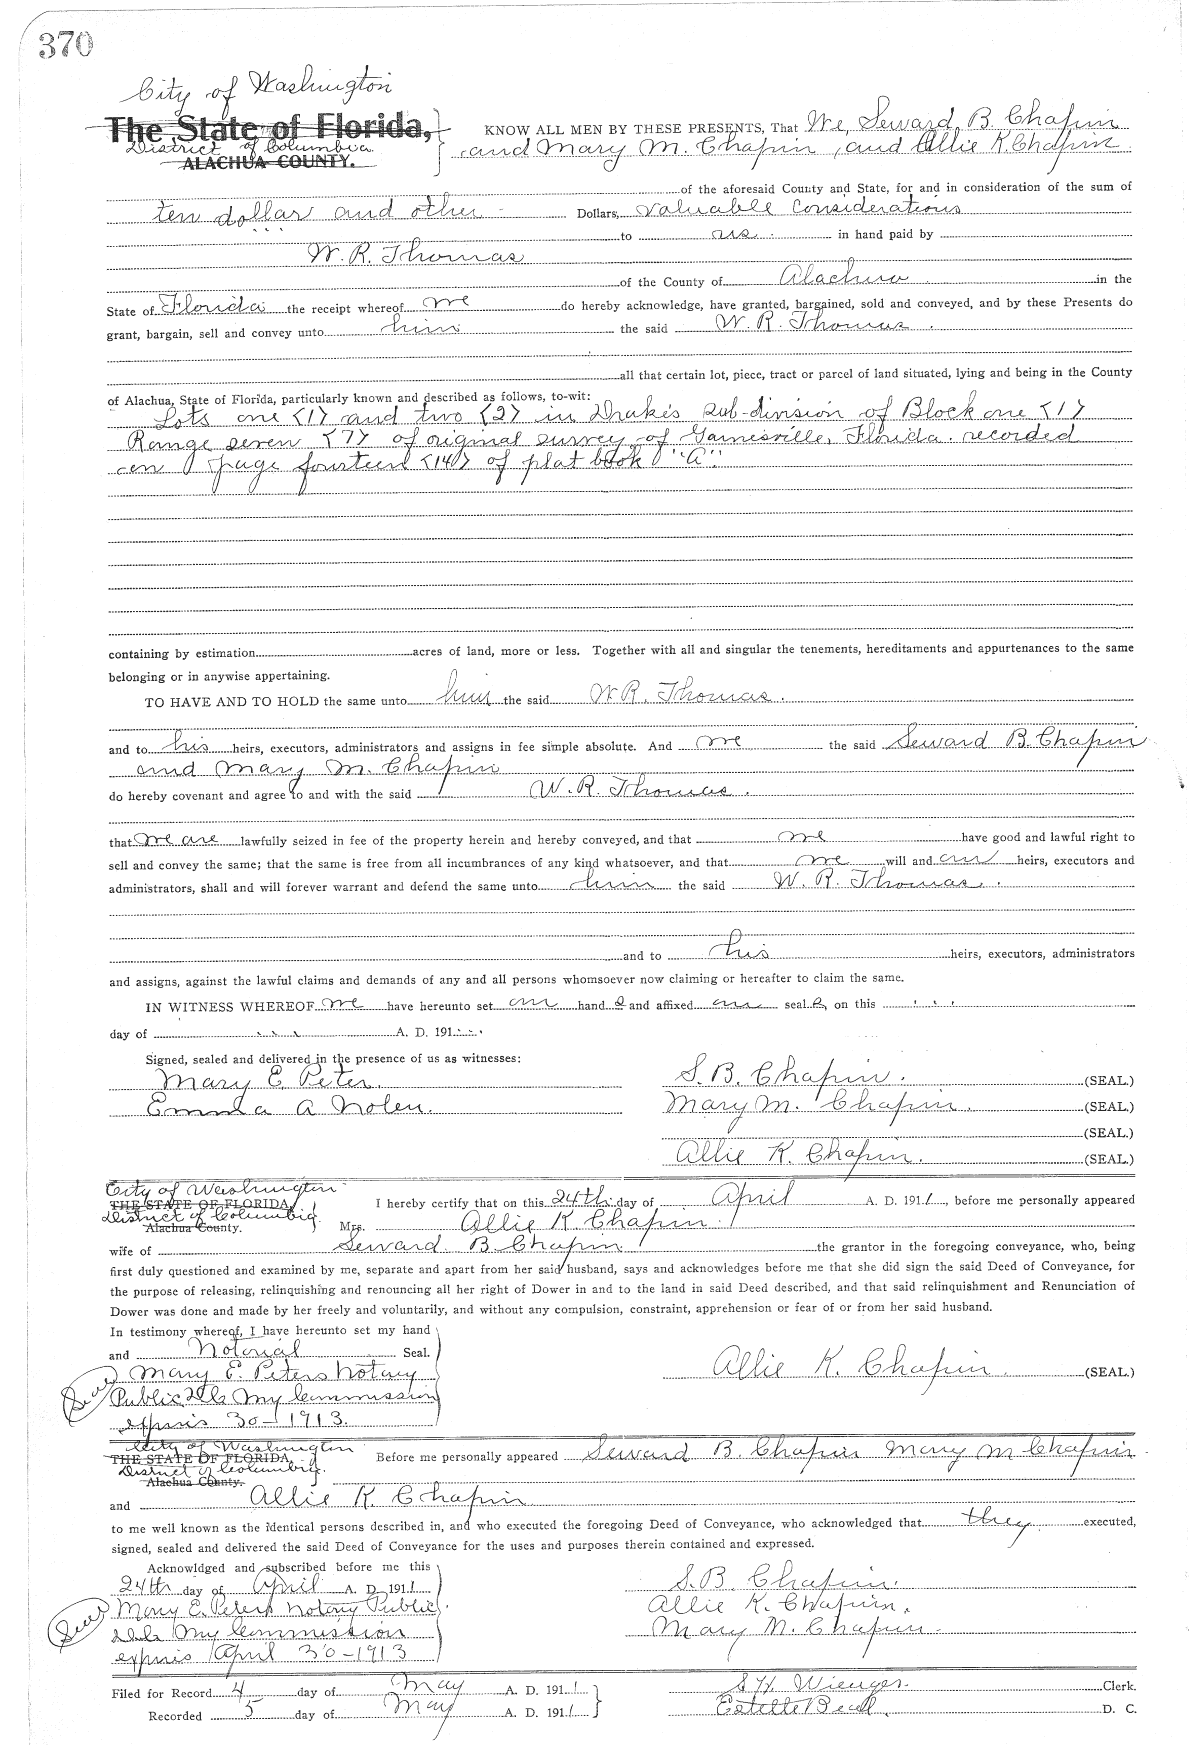 370
City of Washington
The State of Florida,
District of Columbia
ALACHUA COUNTY.
KNOW ALL MEN BY THESE PRESENTS, That We, Seward B. Chapin
and Mary M. Chapin, and Allie K. Chapin
of the aforesaid County and State, for and in consideration of the sum of
ten dollar and other Dollars, valuable considerations
to us in hand paid by
W. R. Thomas
of the County of Alachua in the
State of Florida the receipt whereof we do hereby acknowledge, have granted, bargained, sold and conveyed, and by these Presents do
grant, bargain, sell and convey unto him the said W. R. Thomas.
all that certain lot, piece, tract or parcel of land situated, lying and being in the County
of Alachua, State of Florida, particularly known and described as follows, to-wit:
Lots one (1) and two (2) in Drake's sub-division of Block one (1)
Range seven (7) of original survey of Gainesville, Florida. recorded
on page fourteen (14) of plat book "A".
containing by estimation acres of land, more or less. Together with all and singular the tenements, hereditaments and appurtenances to the same
belonging or in anywise appertaining.
TO HAVE AND TO HOLD the same unto him the said W. R. Thomas.
and to his heirs, executors, administrators and assigns in fee simple absolute. And we the said Seward B. Chapin
and Mary M. Chapin
do hereby covenant and agree to and with the said W. R. Thomas.
that we are lawfully seized in fee of the property herein and hereby conveyed, and that we have good and lawful right to
sell and convey the same; that the same is free from all incumbrances of any kind whatsoever, and that we will and our heirs, executors and
administrators, shall and will forever warrant and defend the same unto him the said W. R. Thomas.
and to his heirs, executors, administrators
and assigns, against the lawful claims and demands of any and all persons whomsoever now claiming or hereafter to claim the same.
IN WITNESS WHEREOF we have hereunto set our hand s and affixed our seal s, on this
day of A. D. 191
Signed, sealed and delivered in the presence of us as witnesses:
Mary E. Peter. S. B. Chapin. (SEAL.)
Emma A Nolen. Mary M. Chapin. (SEAL.)
(SEAL.)
Allie K. Chapin. (SEAL.)
City of Washington
THE STATE OF FLORIDA,
District of Columbia
Alachua County.
I hereby certify that on this 24th day of April A. D. 1911, before me personally appeared
Mrs. Allie K. Chapin.
wife of Seward B Chapin the grantor in the foregoing conveyance, who, being
first duly questioned and examined by me, separate and apart from her said husband, says and acknowledges before me that she did sign the said Deed of Conveyance, for
the purpose of releasing, relinquishing and renouncing all her right of Dower in and to the land in said Deed described, and that said relinquishment and Renunciation of
Dower was done and made by her freely and voluntarily, and without any compulsion, constraint, apprehension or fear of or from her said husband.
In testimony whereof, I have hereunto set my hand
and Notorial Seal.
Mary E. Peters Notary Allie K. Chapin. (SEAL.)
Seal Public My Commission
expires 30-1913.
City of Washington
THE STATE OF FLORIDA,
District of Columbia.
Alachua County.
Before me personally appeared Seward B. Chapin Mary M Chapin
and Allie K. Chapin
to me well known as the identical persons described in, and who executed the foregoing Deed of Conveyance, who acknowledged that they executed,
signed, sealed and delivered the said Deed of Conveyance for the uses and purposes therein contained and expressed.
Acknowldged and subscribed before me this
24th day of April A. D. 1911 S. B. Chapin.
Mary E. Peters Notary Public Allie K. Chapin.
Seal My Commission Mary M. Chapin.
expires April 30-1913
Filed for Record 4 day of May A. D. 1911 S. H. Wienges. Clerk.
Recorded 5 day of May A. D. 1911 Estelle Beal. D. C.